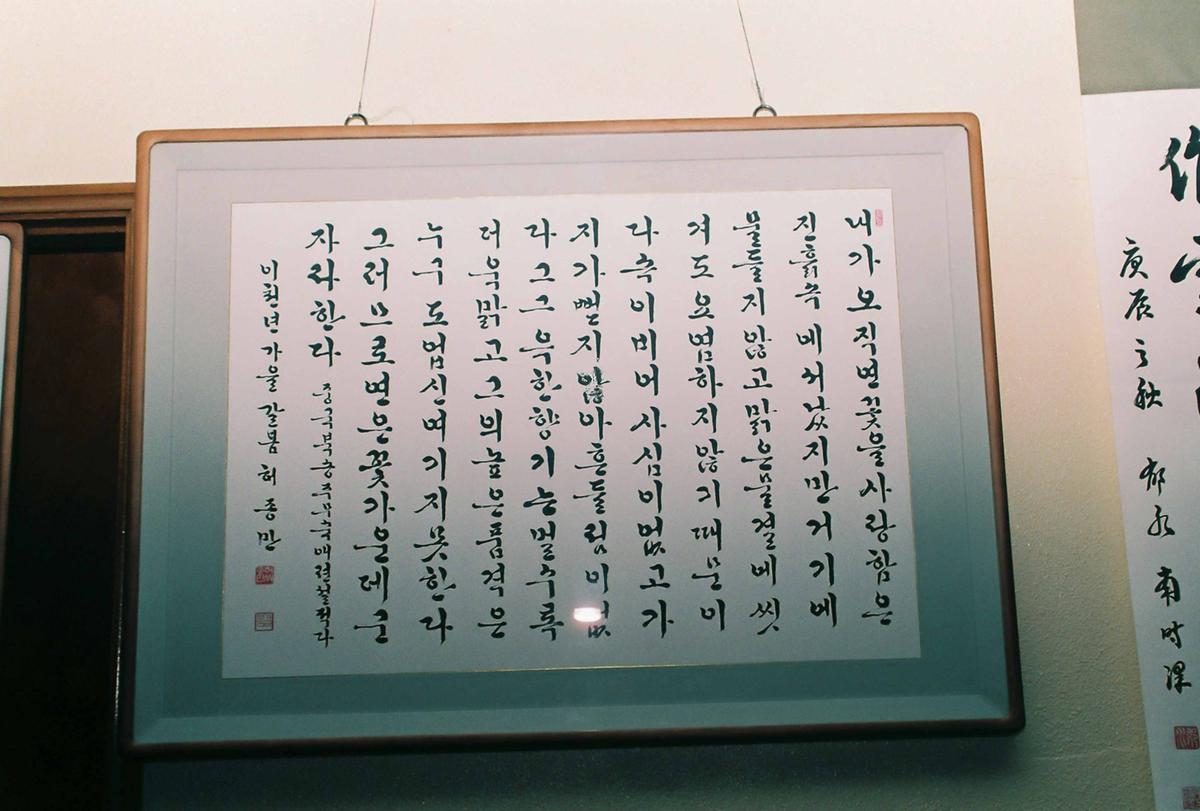 내가오직연꽃을사랑함은
진흙속에서났지만거기에
물들지않고맑은물결에씻
겨도요염하지않기때문이
다속이비어사심이없고가
지가뻗지않아흔들림이없
다그그윽한향기는멀수록
더욱맑고그의높은품격은
누구도업신여기지못한다
그러므로연은꽃가운데군
자라한다
중국북송주무숙애련설적다
이천년가을갈봄허종만
作
庚辰之秋
南時